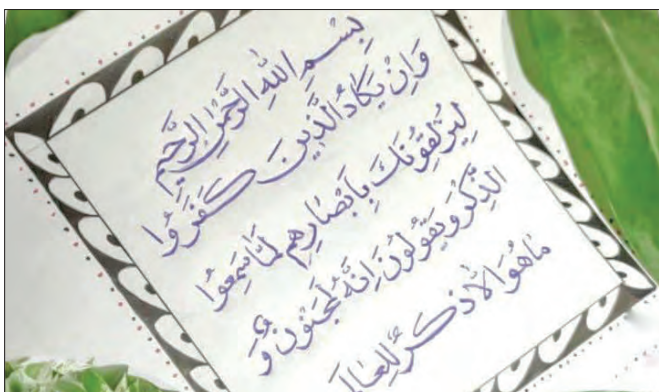 بِسْمِ اللهِ الرَّحْمٰنِ الرَّحِيمِ
وَاِنْ يَكَادُ الَّذِينَ كَفَرُوا
لَيُزْلِقُونَكَ بِاَبْصَارِهِمْ لَمَّا سَمِعُوا
الذِّكْرَ وَيَقُولُونَ اِنَّهُ لَمَجْنُونٌ وَ
مَا هُوَ اِلَّا ذِكْرٌ